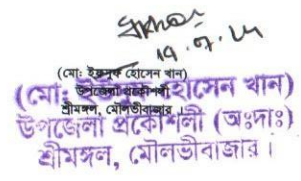 ১৭.০৭.২৫
(মো: ইউসুফ হোসেন খান)
উপজেলা প্রকৌশলী
শ্রীমঙ্গল, মৌলভীবাজার।
(মো: হোসেন খান)
উপজেলা প্রকৌশলী (অঃদাঃ)
শ্রীমঙ্গল, মৌলভীবাজার।